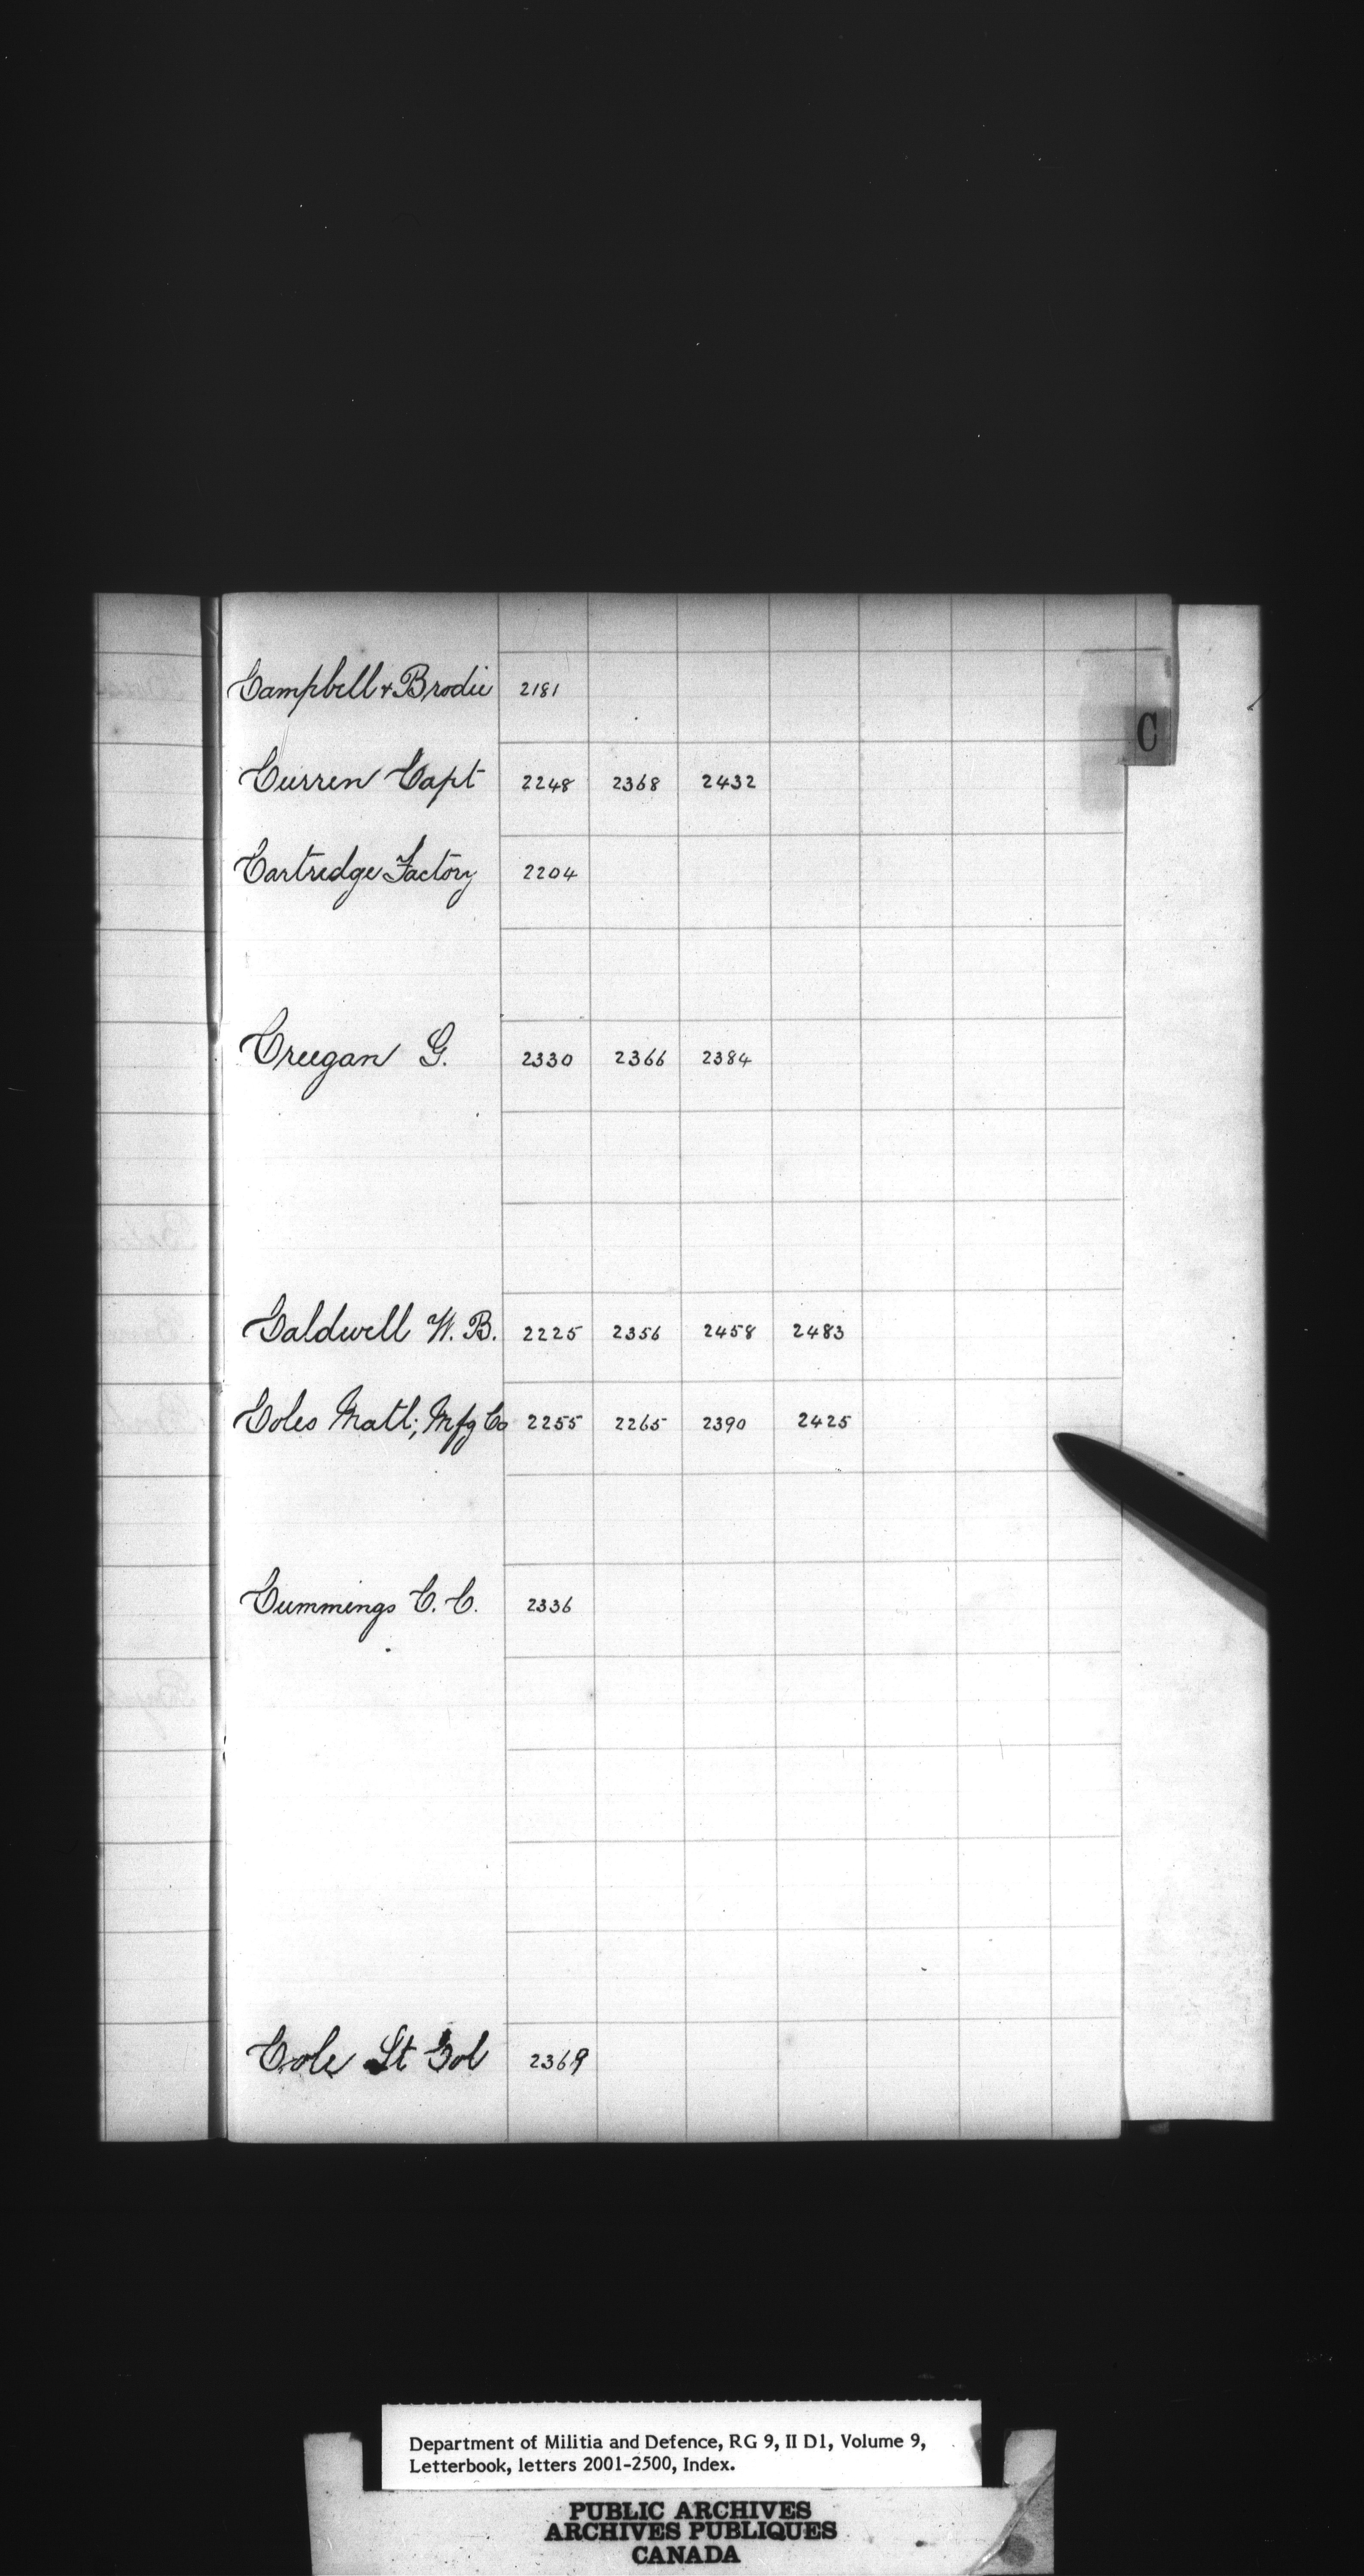 C
Campbell & Brodie 2181
Curren Capt 2248 2368 2432
Cartridge Factory 2204
Creegan G. 2330 2366 2384
Caldwell W. B. 2225 2356 2458 2483
Coles Natl; Mfg Co 2255 2265 2390 2425
Cummings C. C. 2336
Cole Lt Col 2369
Department of Militia and Defence, RG 9, II D1, Volume 9,
Letterbook, letters 2001-2500, Index.
PUBLIC ARCHIVES
ARCHIVES PUBLIQUES
CANADA